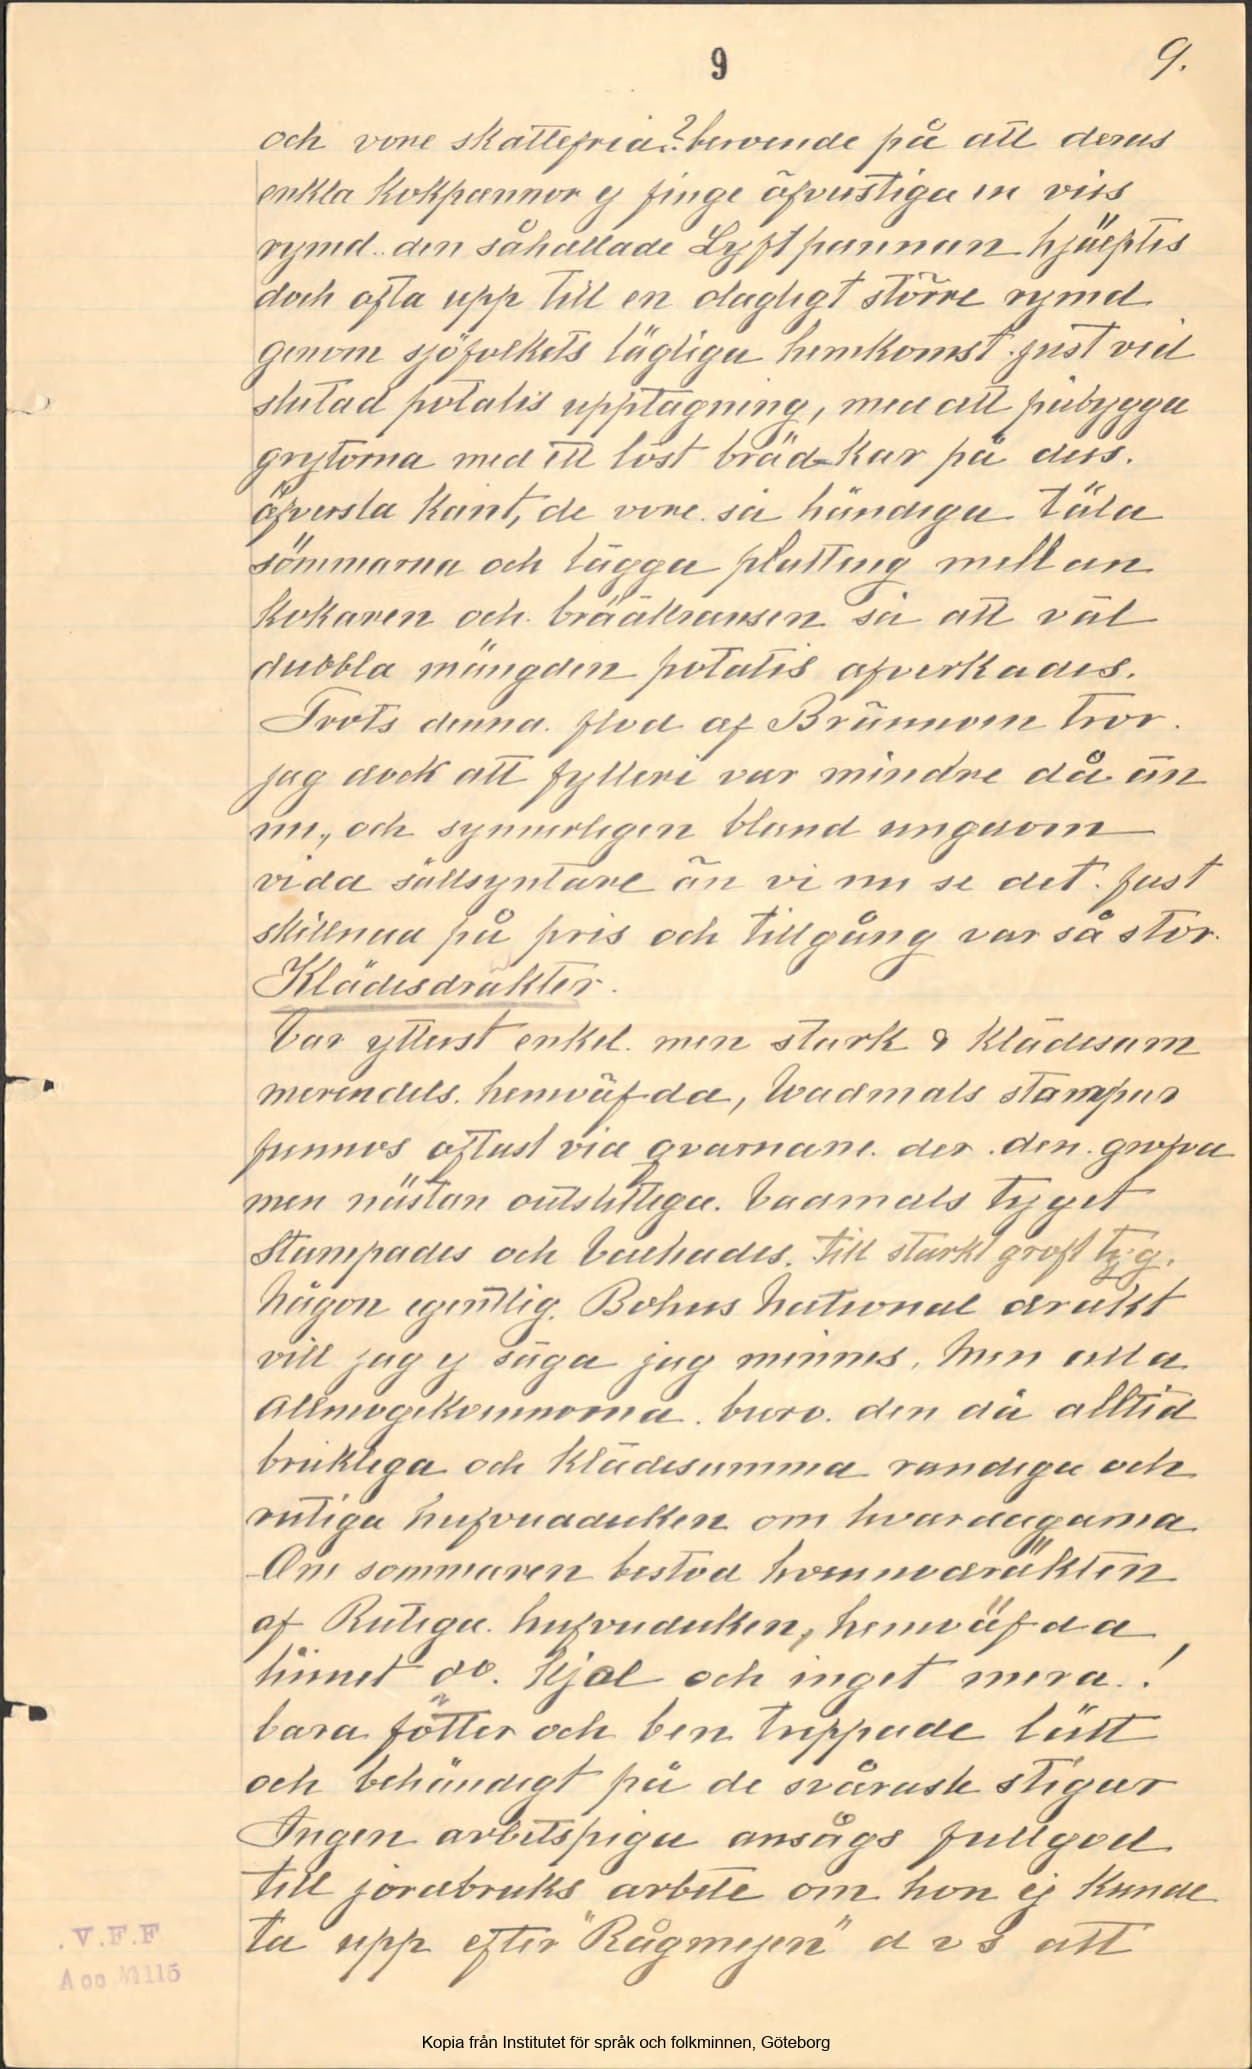 9
9.
och vore skattefria? beroende på att deras
enkla kokpannor ej finge öfverstiga en viss
rymd.. den såkallade Lyftpannan hjälptes
doch ofta upp till en dagligt större rymd
genom sjöfolkets lägliga hemkomst just vid
slutad potatis upptagning, med att påbygga
grytorna med ett löst bräd-kar på dess.
öfversta kant, de vore så händiga täla
sömmarna och lägga platting mellan
kokaren och brädkransen så att väl
dubbla mängden potatis afverkades.
Trots denna flod af Brännvin tror
jag dock att fylleri var mindre då än
nu., och synnerligen bland ungdom
vida sällsyntare än vi nu se det. fast
skillnad på pris och tillgång var så stor.
Klädesdräkter.
Var ytterst enkel. men stark & klädesam
merendels. hemväfda, Wadmals stampar
funnos oftast vid qvarnarne. der den grofva
men nästan outslitliga. Vadmals tyget
Stampades och Valkades. till starkt groft tyg.
Någon egentlig. Bohus National dräkt
vill jag ej säga jag minnes, Men alla
Allmogekvinnorna. buro. den då alltid
brukliga och klädesamma randiga och
rutiga hufvudduken om hvardagarna
Om sommaren bestod kvinnodräkten
af Rutiga. hufvuduken, hemväfda
linnet do. kjol och inget mera..!
bara fötter och ben trippade lätt
och behändigt på de svåraste stigar
Ingen arbetspiga ansågs fullgod
till jordbruks arbete om hon ej kunde
ta upp efter "Rågmejen" d v s att
V.F.F
Acc 1115
Kopia från Institutet för språk och folkminnen, Göteborg